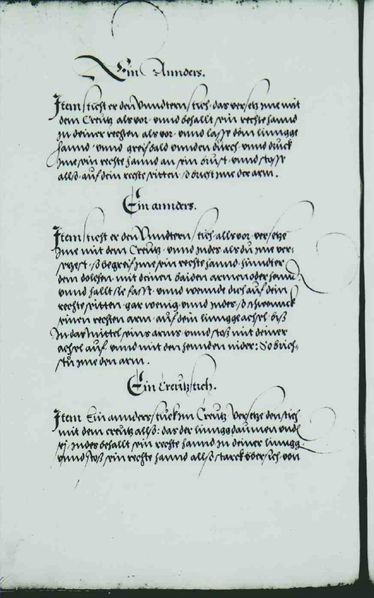 Ein Annders.
Item sticht er den Unndtern stich, das versetz ime mit
dem Creutz als vor, unnd behallt sein rechte hannd
in deiner rechten als vor, unnd lasz dein linngge
hannd, unnd greif bald unnden durch, unnd druck
ime sein rechte hannd an sein brust, unnd stoss
allss auf dein rechte seitten, so brichst ime der arm.
Ein annders.
Item sticht er den Unndtern stich, alls vor, versetze
ime mit dem Creutz, unnd inndes als du ime ver-
setzest, so begreif ime sein rechte hannd, hinnder
dem dolchen mit deinen baiden armen oder hannd
unnd hallt sie fasst, unnd wennde dich auf dein
rechte seitten gar wenig, unnd inndes, so
seinen rechten arm, auf dein linngge achsel, bisz
in das mittel seins arms, unnd stosz mit deiner
achsel auf, unnd mit den hennden nider: So brich-
stu ime den arm.
Ein Creutzstich.
Item Ein annders stuckh im Creutz, Versetze den stich
mit dem creutz allso: das der linngg daumen undten
sej, inndes behallt sein rechte hannd in deiner linngg,
unnd stosz sein rechte hannd allss starck übersich von